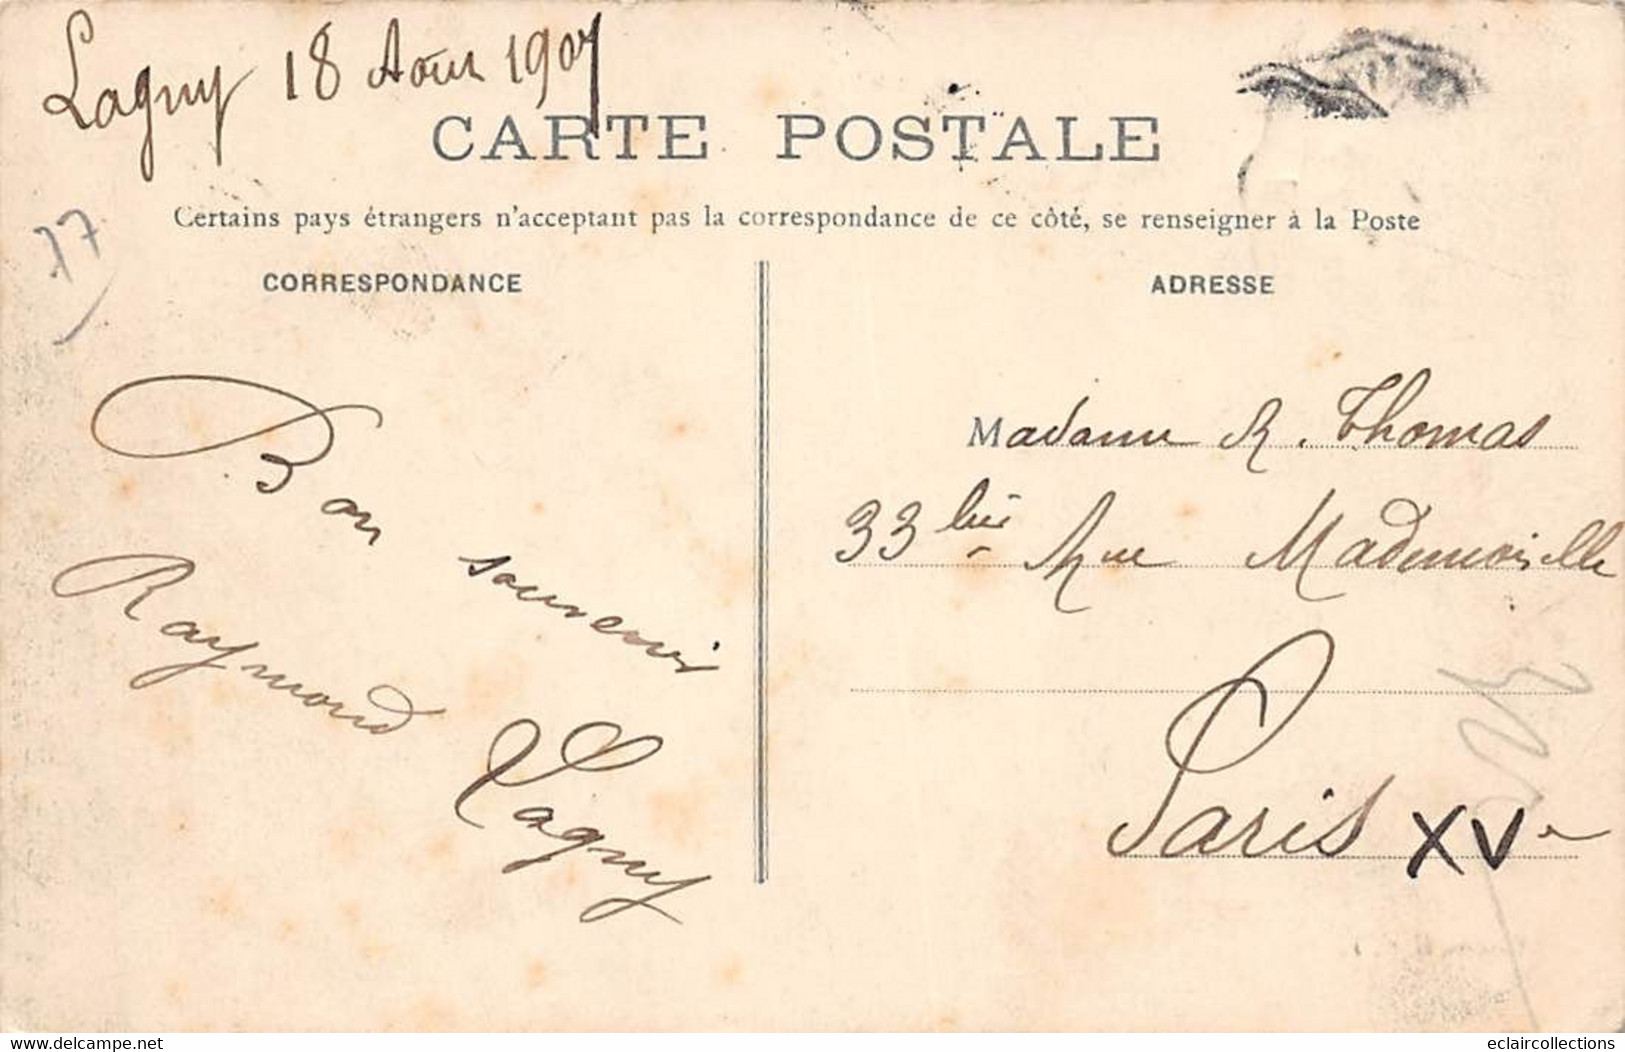 Lagny 18 Août 1907
CARTE POSTALE
Certains pays étrangers n'acceptant pas la correspondance de ce côté, se renseigner à la Poste
77
CORRESPONDANCE
ADRESSE
Bon souvenir
Raymond
Lagny
Madame R. Thomas
33 bis Rue Mademoiselle
Paris XVe
www.delcampe.net
eclaircollections